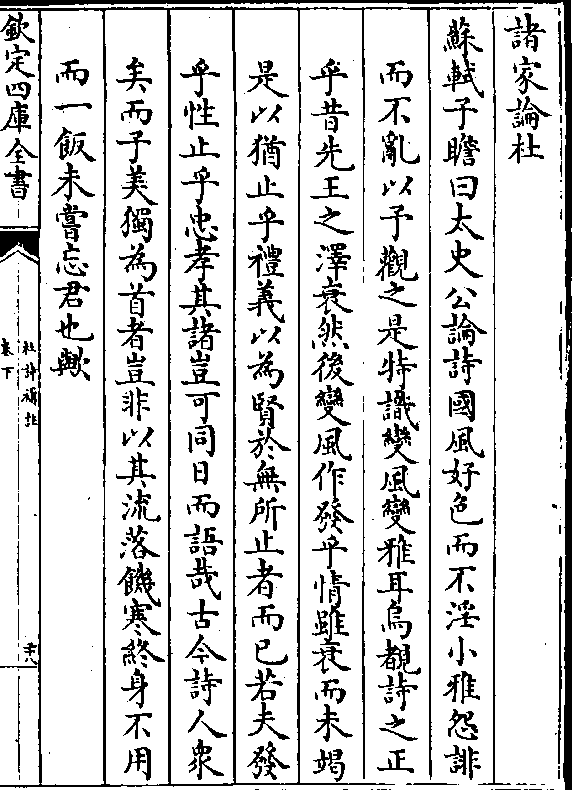 諸家論杜
蘇軾子瞻曰太史公論詩國風好色而不淫小雅怨誹
而不亂以予觀之是特識變風變雅耳烏覩詩之正
乎昔先王之澤衰然後變風作發乎情雖衰而未竭
是以猶止乎禮義以為賢於無所止者而已若夫發
乎性止乎忠孝其諸豈可同日而語哉古今詩人衆
矣而子美獨為首者豈非以其流落饑寒終身不用
而一飯未嘗忘君也歟
欽定四庫全書
杜詩攟
卷下